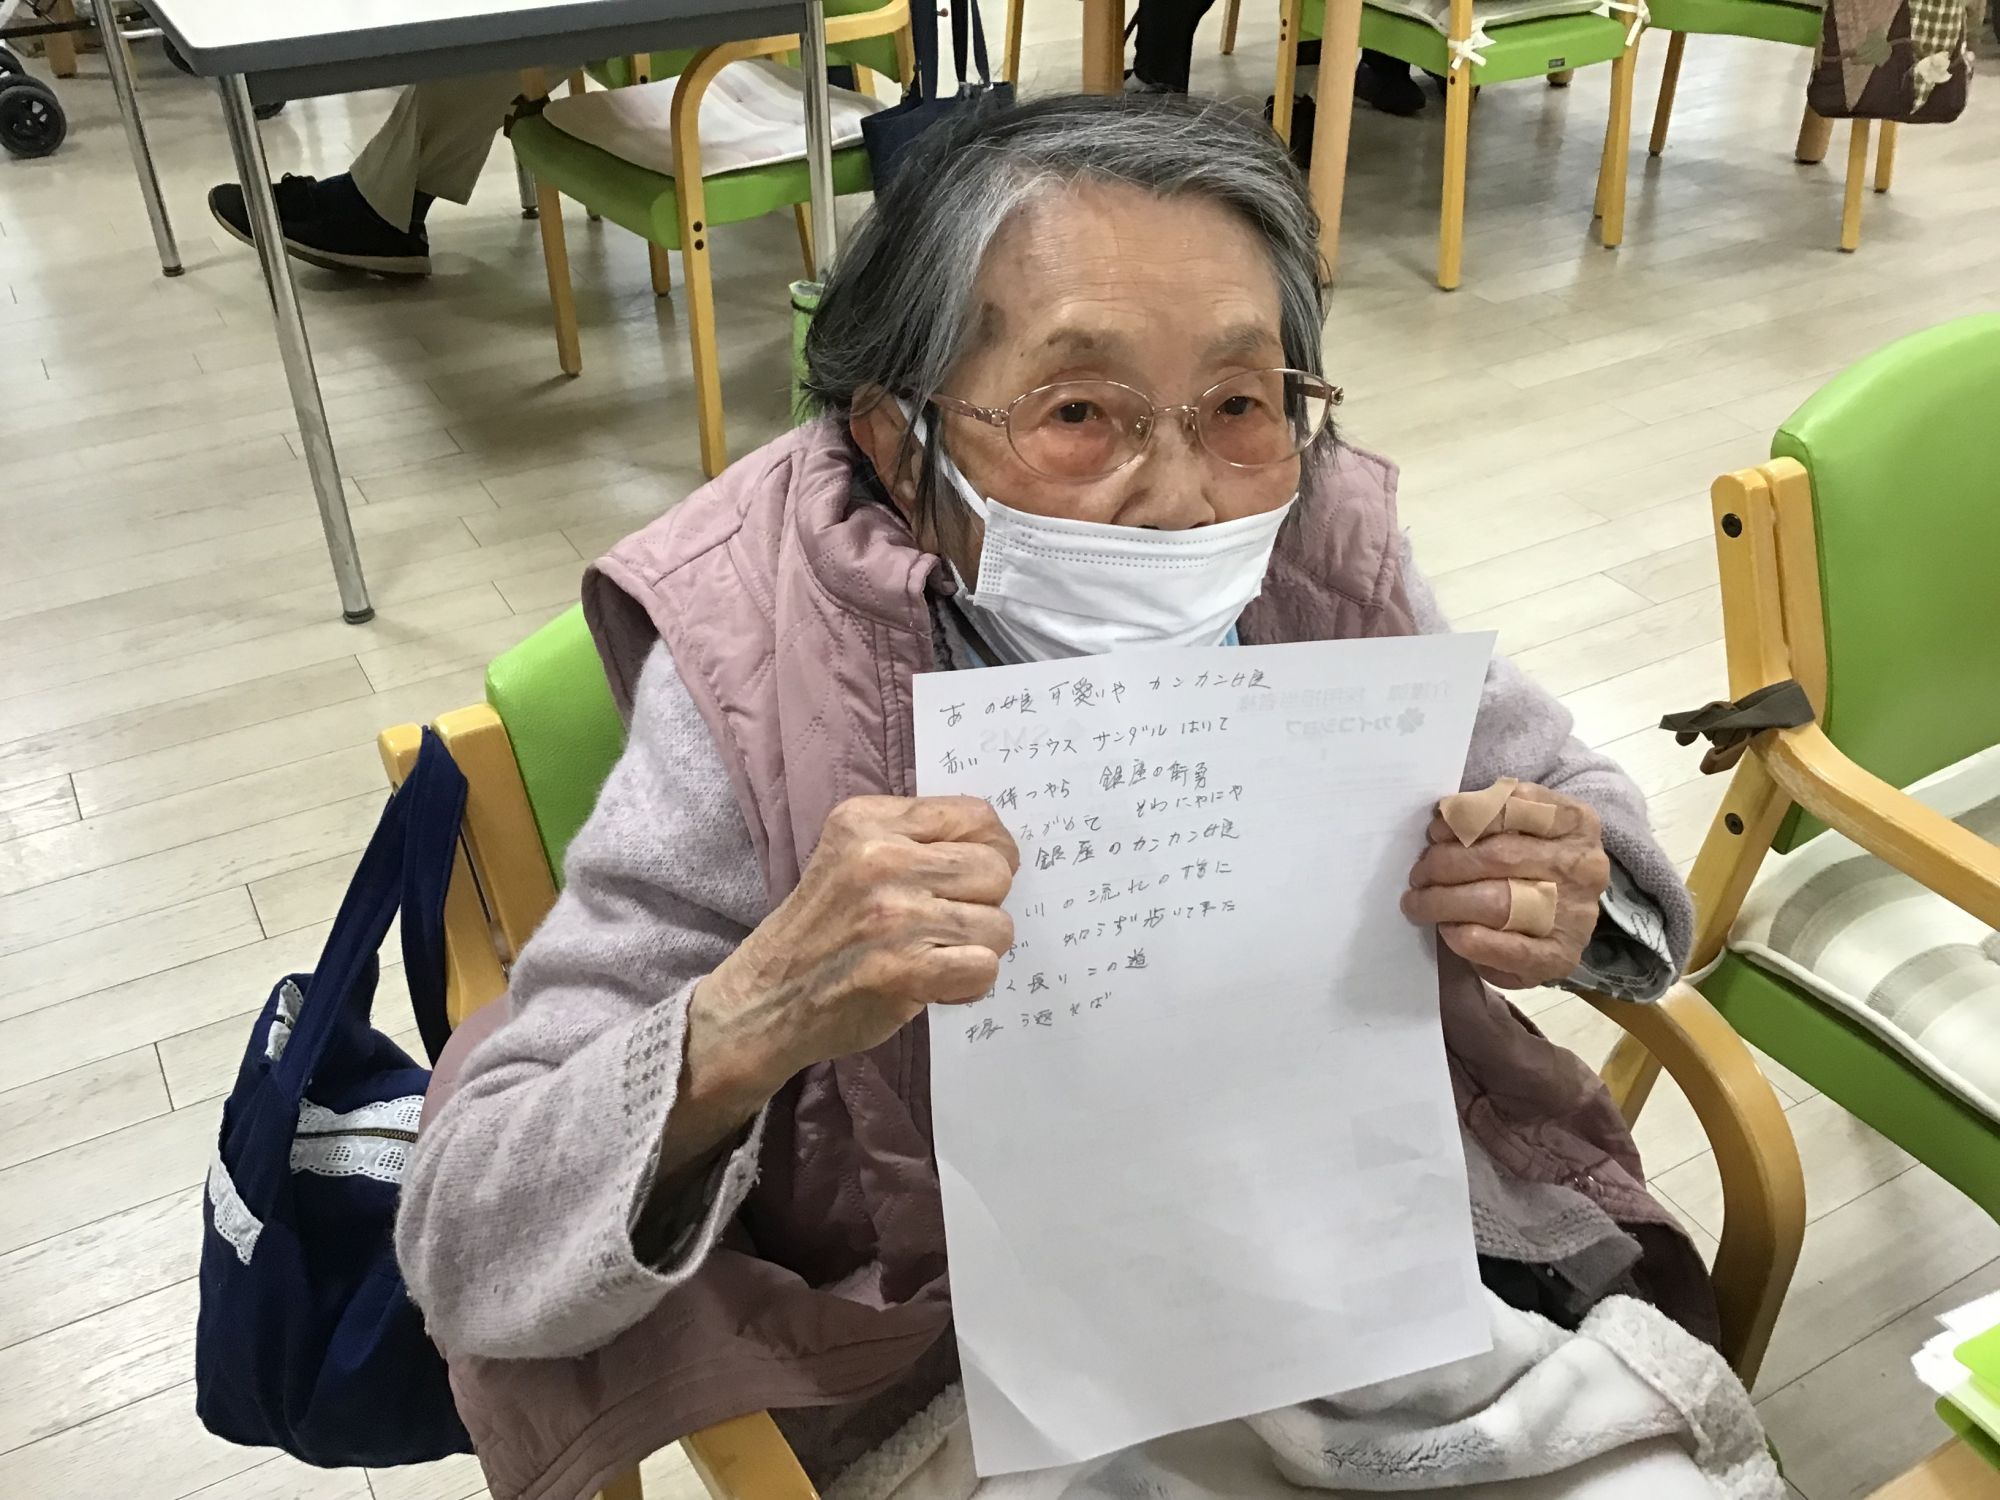 あの娘可愛いや カンカン娘
赤い ブラウス サンダル はいて
待つやら 銀座の街
ながめて そわにやにや
銀座のカンカン娘
川の流れの様に
知らず歩いて来た
く長い この道
返せば
介護職 採用担当者様
カイゴジョブ
SMS